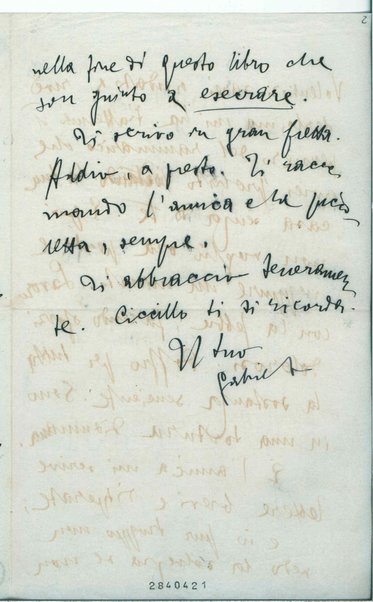 2
nella fine di questo libro che
son giunto a esecrare.
Ti scrivo in gran fretta.
Addio, a presto. Ti racco
mando l'amica e la
, sempre.
Ti abbraccio teneramen
te. Ciccillo ti si ricorda.
Il tuo
Gabriele
2840421